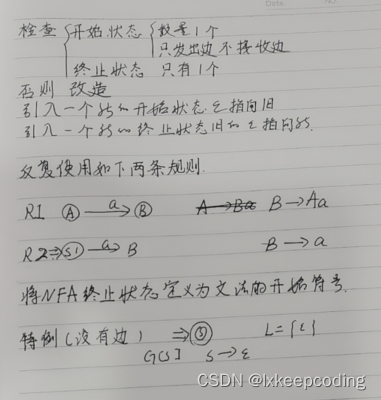 检查 开始状态 数量1个
只发出边不接收边
终止状态 只有1个
否则 改造
引入一个新的开始状态 ε指向旧
引入一个新的终止状态旧的ε指向新.
反复使用如下两条规则.
R1 Ⓐ a→ Ⓑ A→Ba B→Aa
R2 ⇒ S1 a→ B B→a
将NFA终止状态定义为文法的开始符号.
特例(没有边) ⇒ Ⓢ L={ε}
G[S] S→ε
CSDN @lxkeepcoding